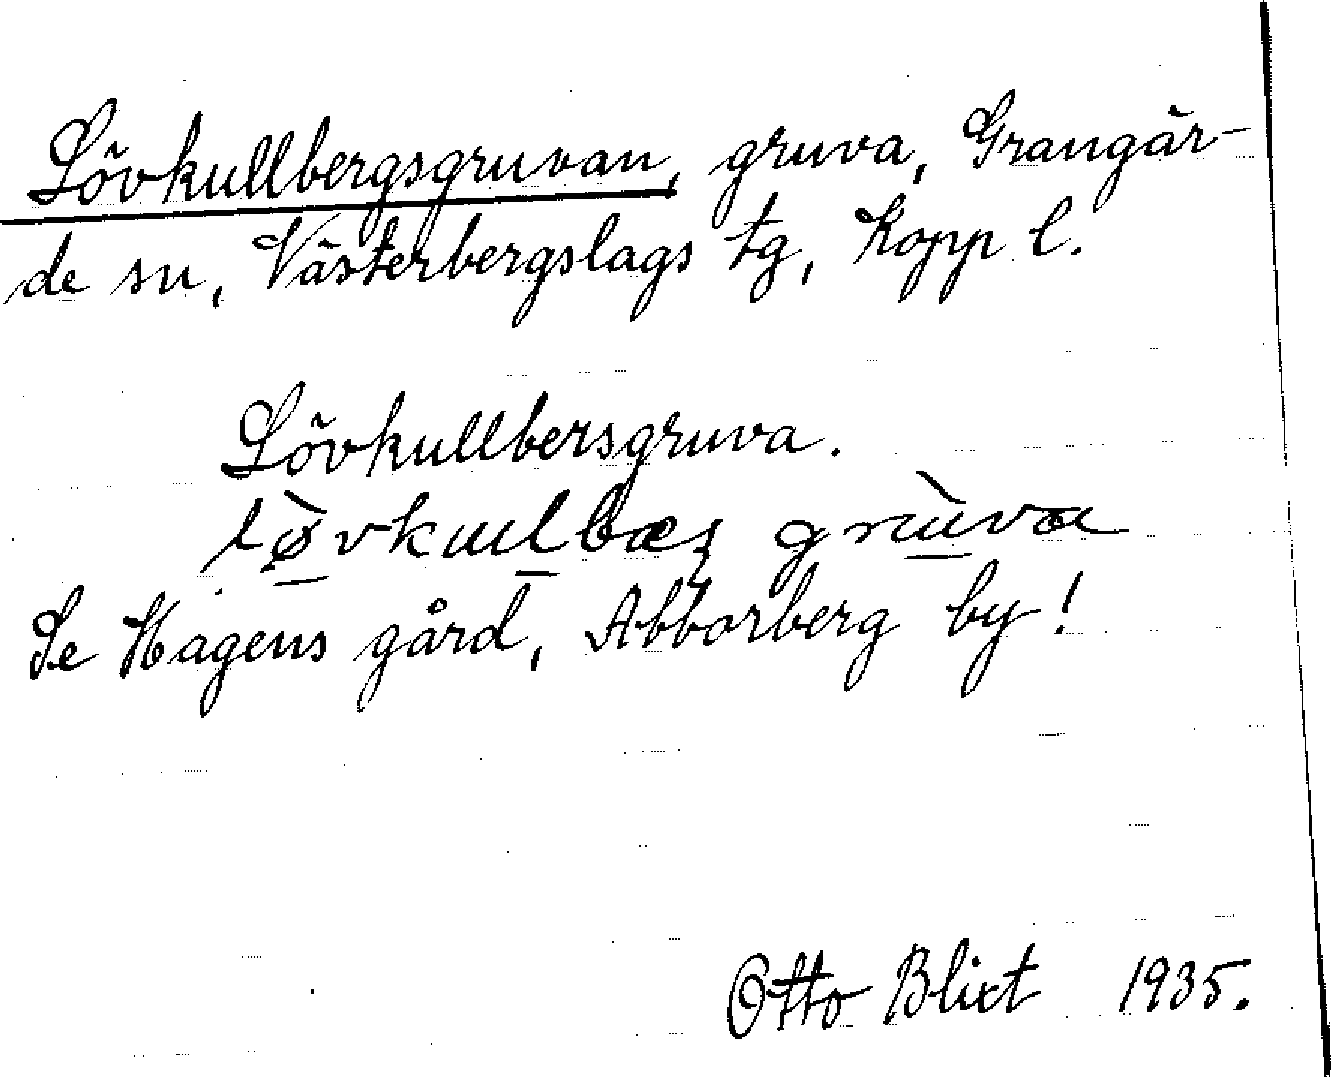 Lövkullbergsgruvan, gruva, Grangär-
de sn, Västerbergslags tg, Kopp l.
Lövkullbersgruva.
lø̀vkulbæʂ grùva
Se Hagens gård, Abborberg by!
Otto Blixt 1935.